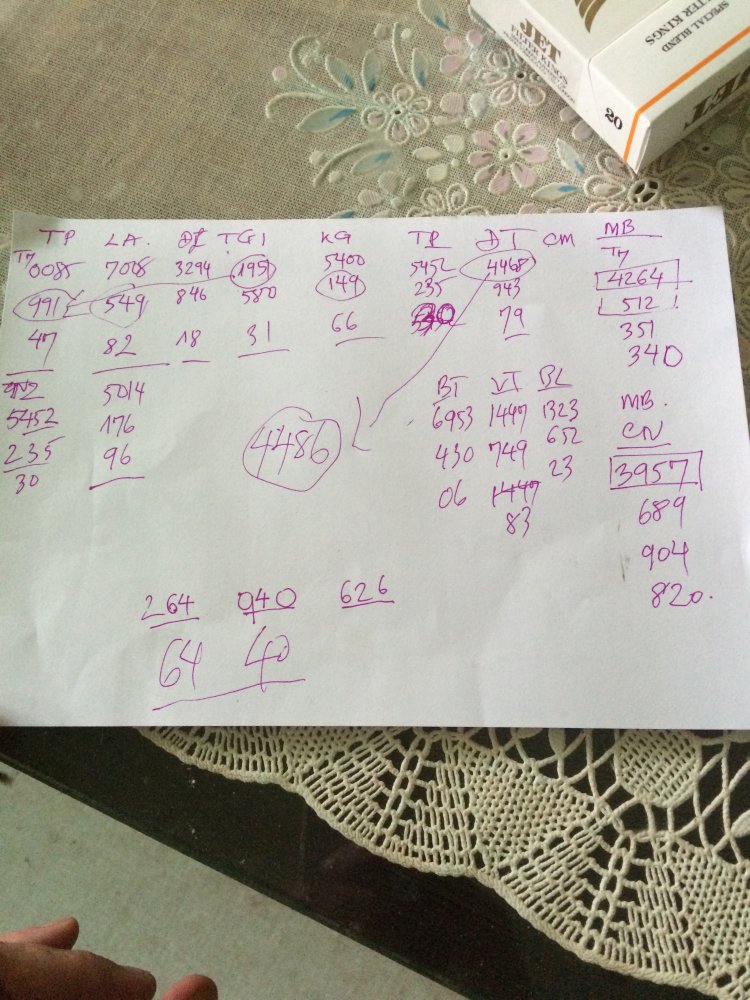 JET
FILTER KINGS
SPECIAL BLEND
TER KINGS
20
JET
TP LA. ĐL TG1 KG TP ĐT CM MB
T7 0085 7008 3294 1959 5400 5452 4468 T7
991 549 846 5880 149 235 943 4264
47 82 18 31 66 30 79 512
351
340
5014
5452 176
235 96
30
4486
BT VT BL MB.
6953 1447 1323 CN
430 749 652 3957
06 1447 23 689
83 904
820.
264 940 626
64 40